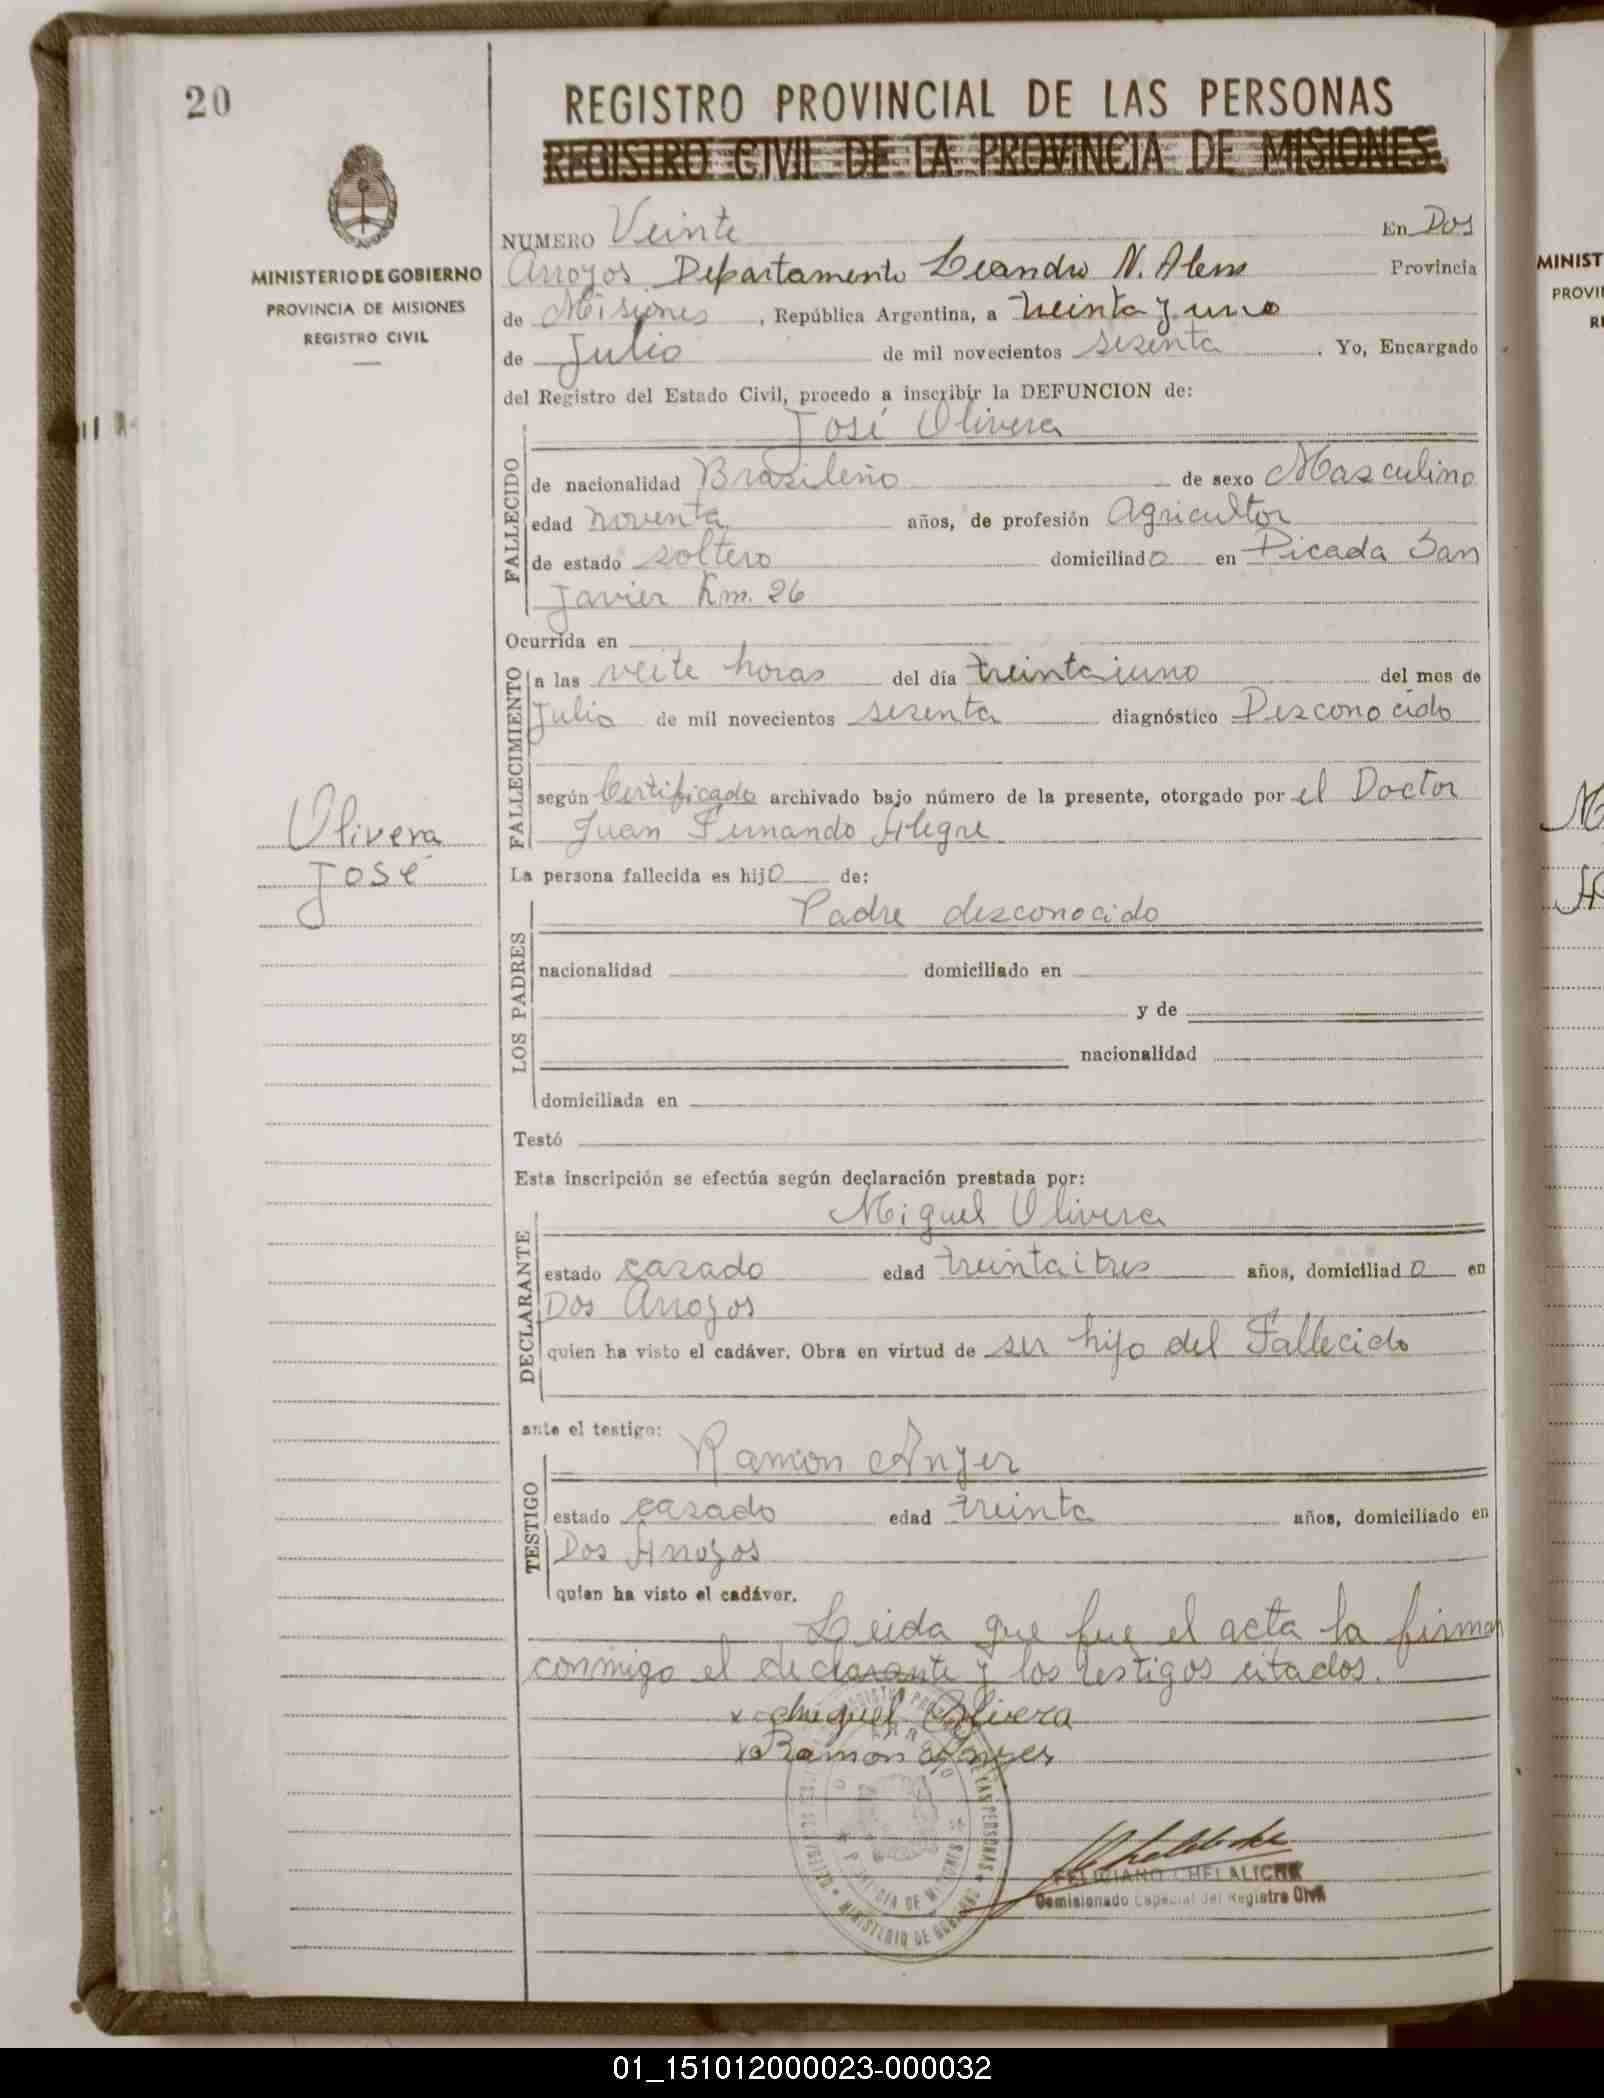 20
REGISTRO PROVINCIAL DE LAS PERSONAS
REGISTRO CIVIL DE LA PROVINCIA DE MISIONES
MINISTERIO DE GOBIERNO
PROVINCIA DE MISIONES
REGISTRO CIVIL
NUMERO Veinte En Dos
Arroyos Departamento Leandro N. Alem Provincia
de Misiones, República Argentina, a treinta y uno
de Julio de mil novecientos sesenta. Yo, Encargado
del Registro del Estado Civil, procedo a inscribir la DEFUNCION de:
José Olivera
FALLECIDO
de nacionalidad Brasileño de sexo Masculino
edad noventa años, de profesión Agricultor
de estado soltero domiciliado en Picada San
Javier Km. 26
Ocurrida en
FALLECIMIENTO
a las veite horas del día treintaiuno del mes de
Julio de mil novecientos sesenta diagnóstico Desconocido
según Certificado archivado bajo número de la presente, otorgado por el Doctor
Juan Fernando Alegre
Olivera
José
La persona fallecida es hijo de:
LOS PADRES
Padre desconocido
nacionalidad domiciliado en
y de
nacionalidad
domiciliada en
Testó
Esta inscripción se efectúa según declaración prestada por:
DECLARANTE
Miguel Olivera
estado casado edad treintaitres años, domiciliado en
Dos Arroyos
quien ha visto el cadáver. Obra en virtud de ser hijo del Fallecido
ante el testigo:
TESTIGO
Ramon Anger
estado casado edad treinta años, domiciliado en
Dos Arroyos
quien ha visto el cadáver.
Leida que fue el acta la firman
conmigo el declarante y los testigos citados.
x Miguel Olivera
x Ramon Anger
PROVINCIA DE MISIONES
MINISTERIO DE GOBIERNO
FELICIANO CHELALICHE
Comisionado Especial del Registro Civil
MINIST
PROVI
RE
01_151012000023-000032